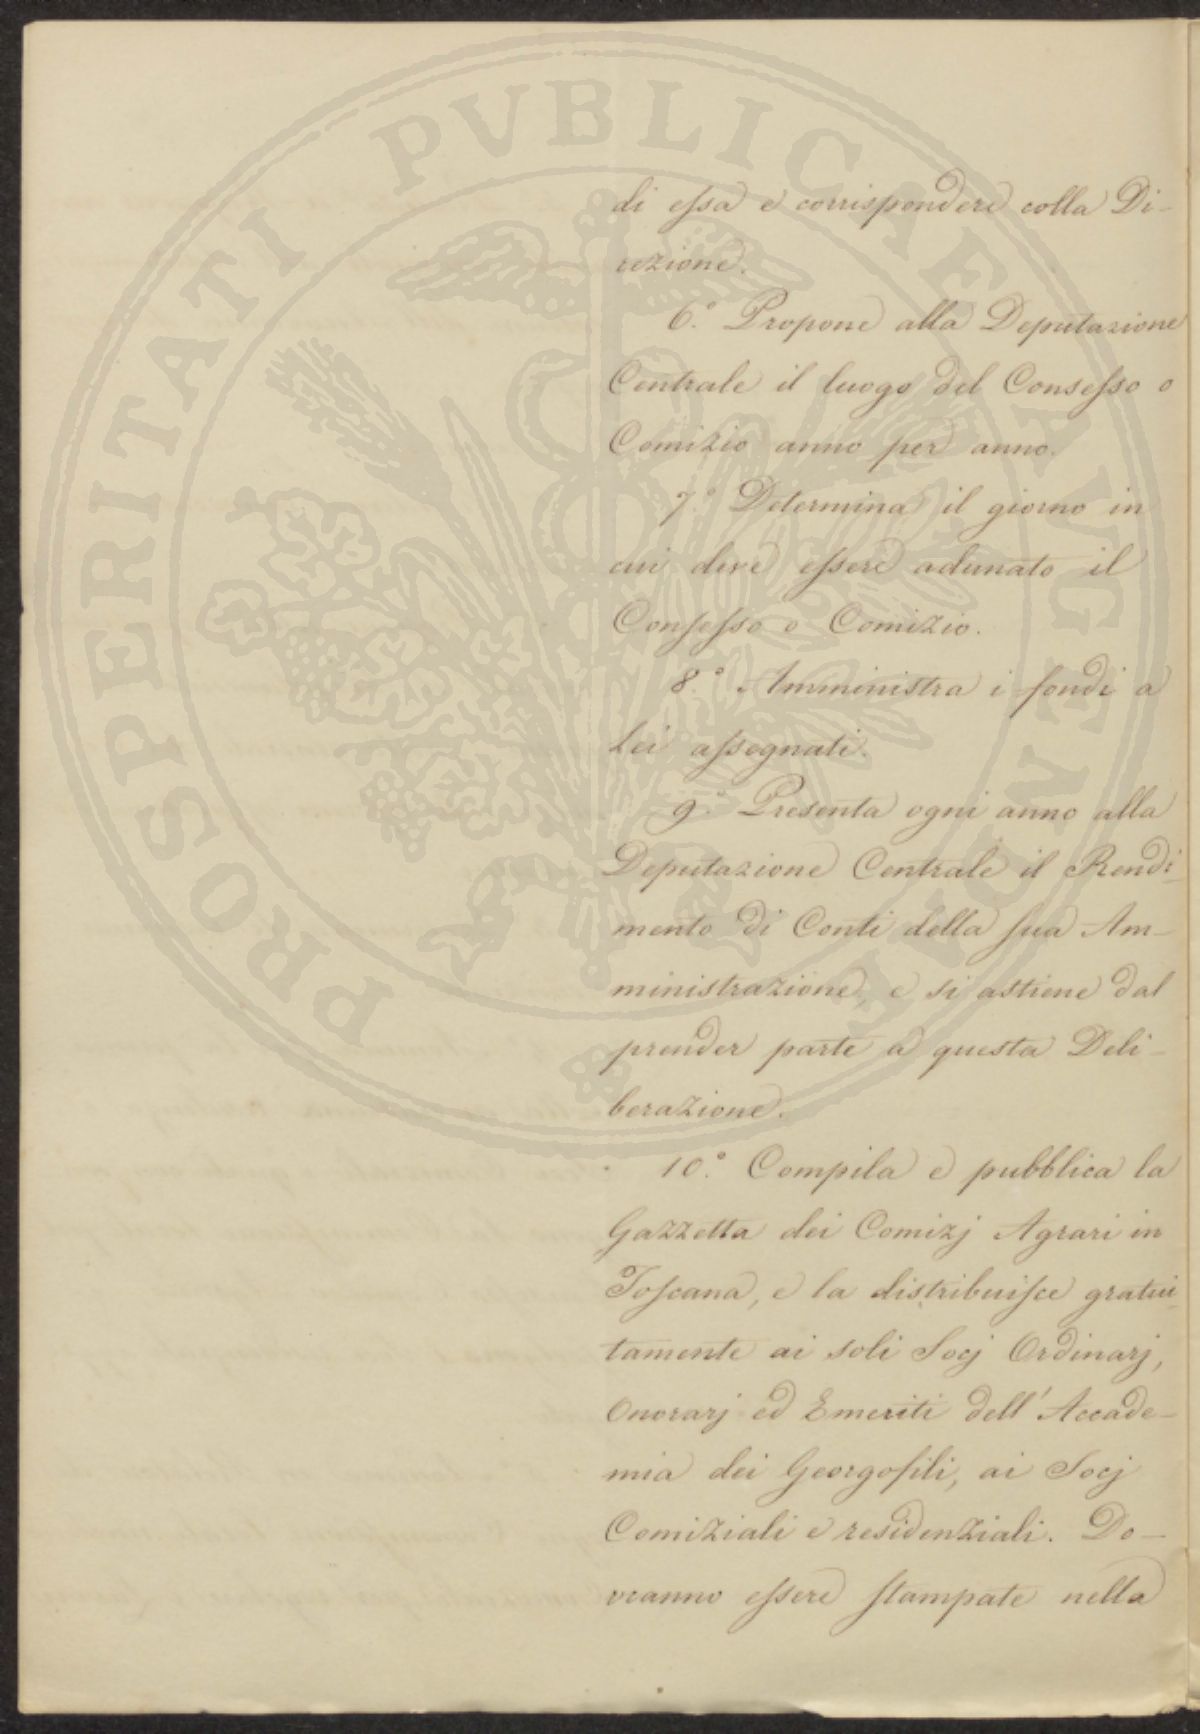 PROSPERITATI PVBLICAE AVGENDAE
di essa e corrispondere colla Di-
rezione.
6.° Propone alla Deputazione
Centrale il luogo del Consesso o
Comizio anno per anno.
7.° Determina il giorno in
cui deve essere adunato il
Consesso o Comizio.
8.° Amministra i fondi a
Lei assegnati.
9.° Presenta ogni anno alla
Deputazione Centrale il Rendi-
mento di Conti della sua Am-
ministrazione, e si astiene dal
prender parte a questa Deli-
berazione.
10.° Compila e pubblica la
Gazzetta dei Comizj Agrari in
Toscana, e la distribuisce gratui-
tamente ai soli Socj Ordinarj,
Onorarj ed Emeriti dell'Accade-
mia dei Georgofili, ai Socj
Comiziali e residenziali. Do-
vranno essere stampate nella